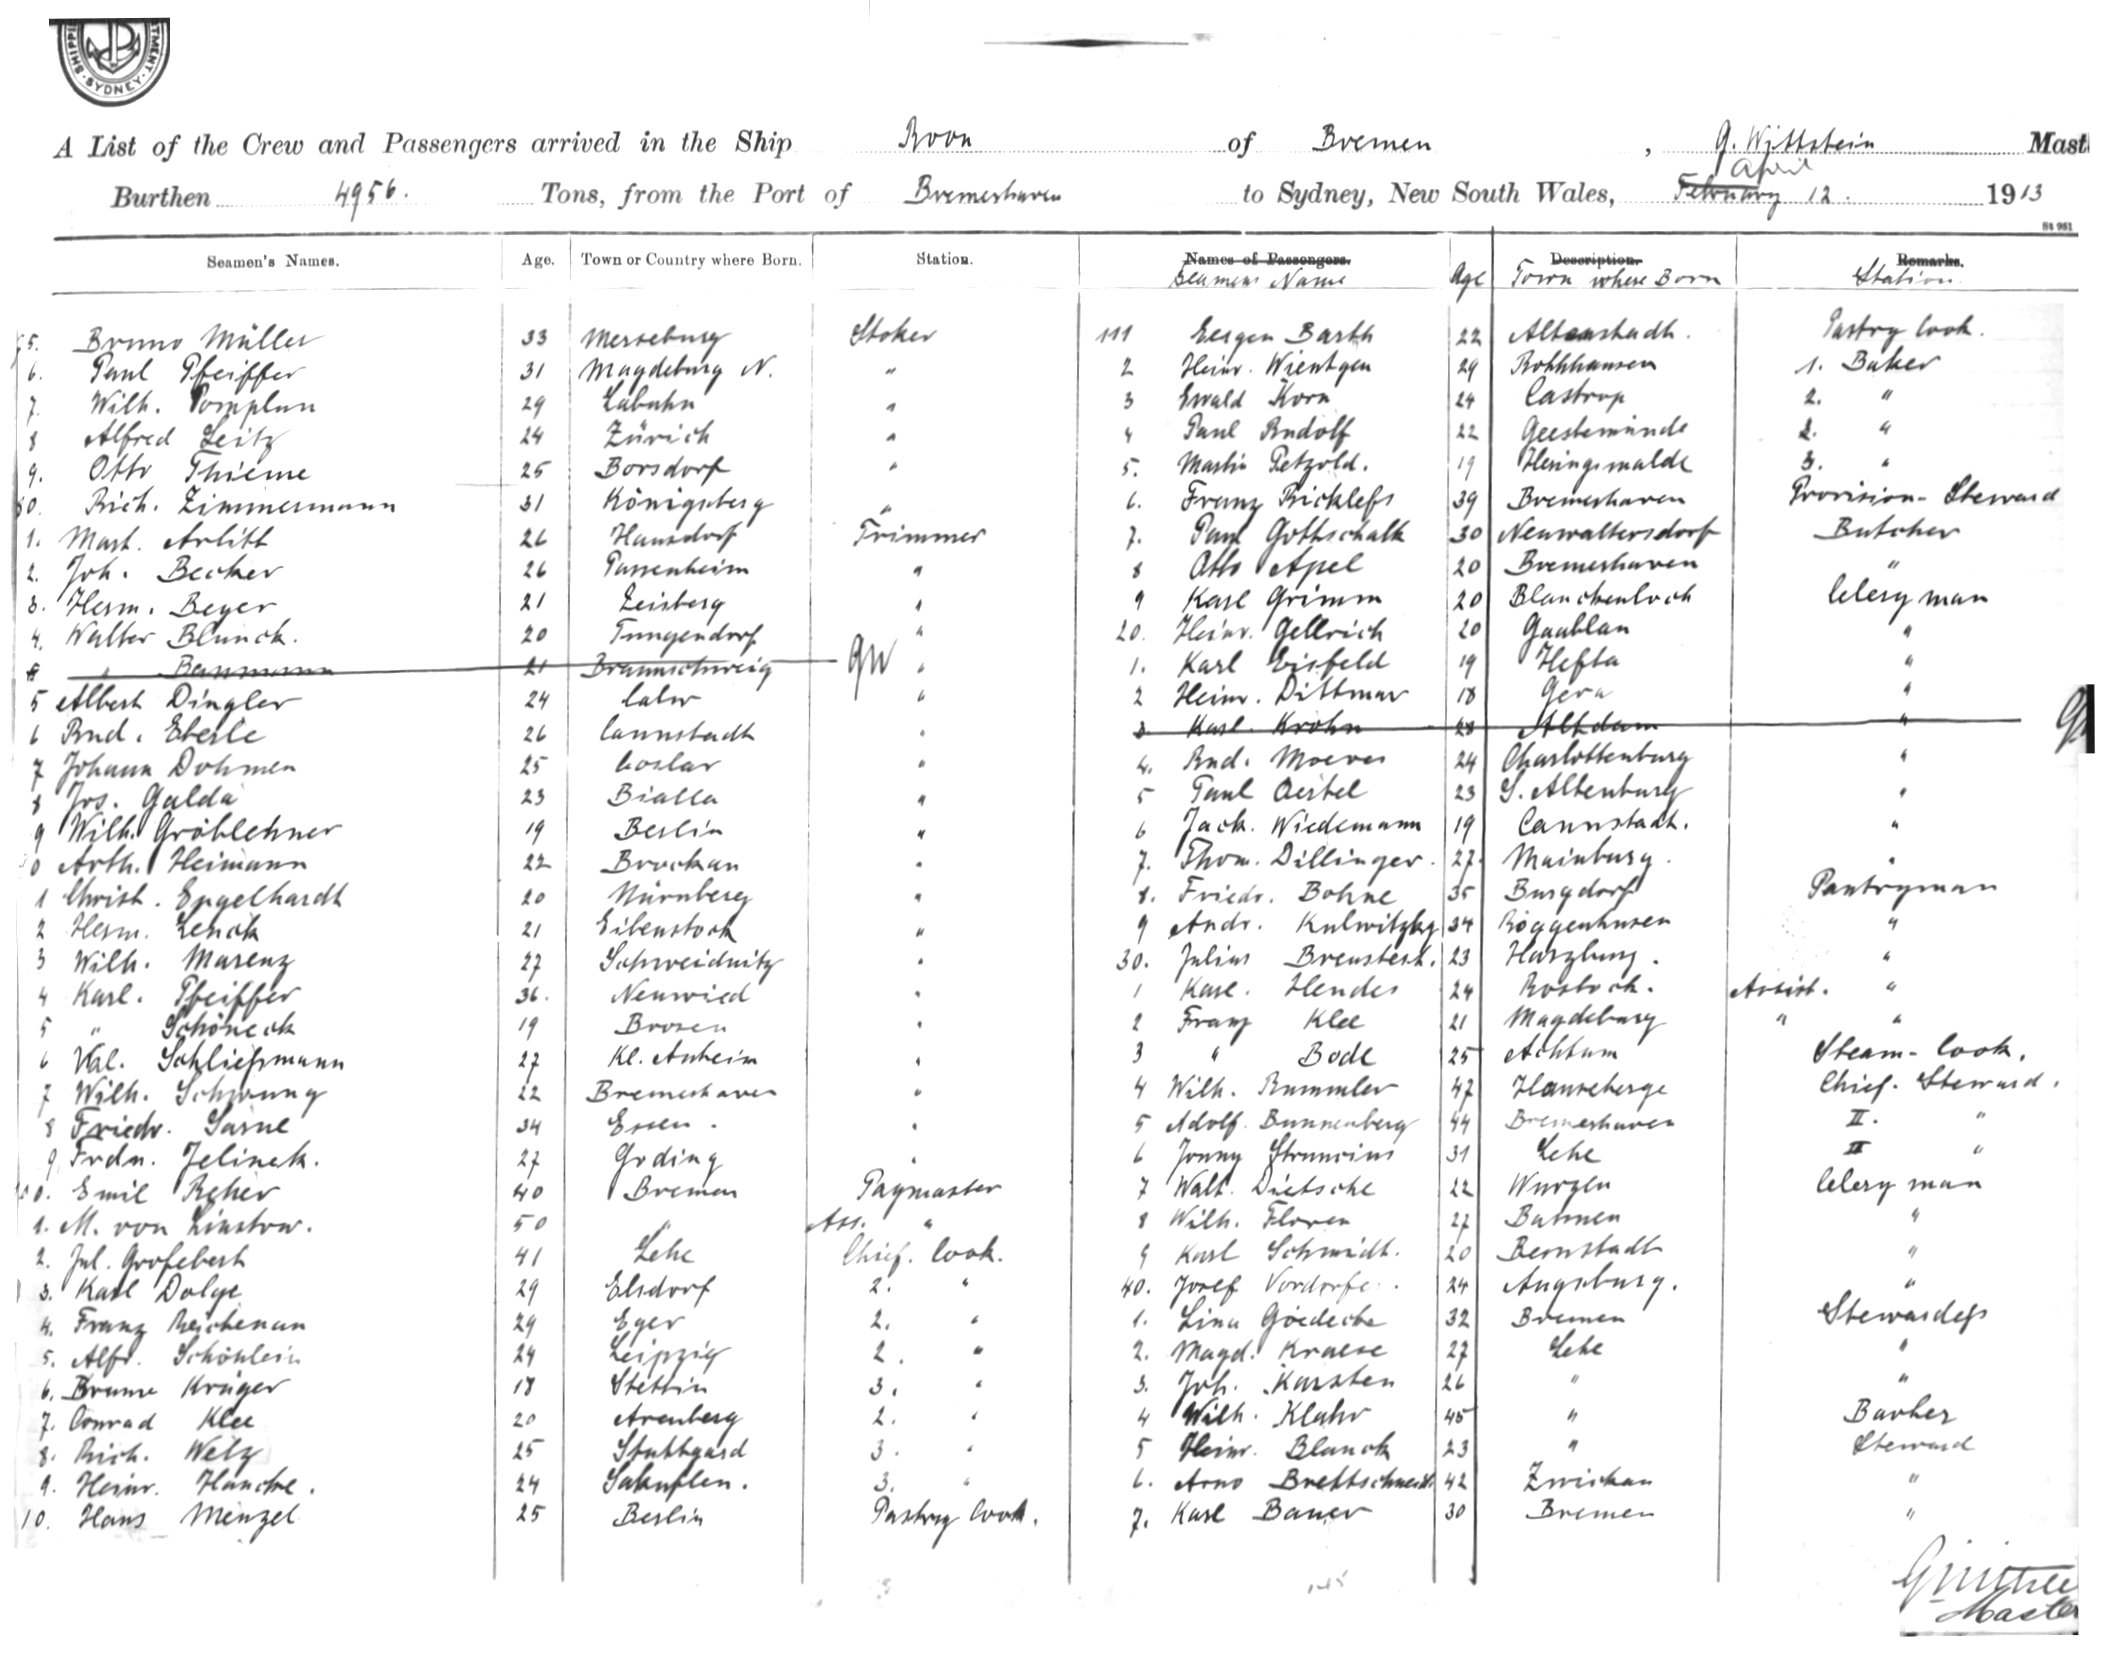 SHIPPI
TMENT.
SYDNEY
A List of the Crew and Passengers arrived in the Ship Roon of Bremen, G. Wittstein Mast
April
Burthen 4956. Tons, from the Port of Bremerhaven to Sydney, New South Wales, February 12. 1913
St 951
Seamen's Names. Age. Town or Country where Born. Station. Names of Passengers. Description. Remarks.
Seamens Name Age Town where Born Station
5. Bruno Müller 33 Merseburg Stoker 111 Eugen Barth 22 Altenstadt. Pastry Cook.
6. Paul Pfeiffer 31 Magdeburg N. " 2 Heinr. Wientgen 29 Rohhhausen 1. Baker
7. Wilh. Pomplun 29 Labuhn " 3 Ewald Korn 24 Castrop 2. "
8 Alfred Leitz 24 Zürich " 4 Paul Rudolf 22 Geestemünde 2. "
9. Otto Thieme 25 Borsdorf " 5. Martin Petzold. 19 Heringswalde 3. "
80. Rich. Zimmermann 31 Königsberg " 6. Franz Ricklefs 39 Bremerhaven Provision-Steward
1. Mart. Arlitt 26 Hansdorf Trimmer 7. Paul Gottschalk 30 Neuwaltersdorf Butcher
2. Joh. Becker 26 Passenheim " 8 Otto Apel 20 Bremerhaven "
3. Herm. Beyer 21 Leisberg " 9 Karl Grimm 20 Blanckenloch Clergyman
4. Walter Blunck. 20 Tungendorf " 20. Heinr. Gellrich 20 Gaablau "
5 " Baumann 21 Braunschweig GW " 1. Karl Eisfeld 19 Hefta "
5 Albert Dingler 24 Calw " 2 Heinr. Dittmar 18 Gera "
6 Rud. Eberle 26 Cannstadt " 3. Karl. Krohn 28 Altdam "
7 Johann Dohmen 25 Goslar " 4. Rud. Moeves 24 Charlottenburg "
8 Jos. Galda 23 Bialla " 5 Paul Oertel 23 S. Altenburg "
9 Wilh. Gröblehner 19 Berlin " 6 Jack. Wiedemann 19 Cannstadt. "
0 Arth. Heimann 22 Brockau " 7. Thom. Dillinger. 27. Mainburg. "
1 Christ. Engelhardt 20 Nürnberg " 8. Friedr. Bohne 35 Burgdorf Pantryman
2 Herm. Lenck 21 Eibenstock " 9 Andr. Kulwitzky 34 Roggenhusen "
3 Wilh. Marenz 27 Schweidnitz " 30. Julius Breustedt. 23 Harzburg. "
4 Karl. Pfeiffer 36. Neuwied " 1 Karl. Hendes 24 Rostock. Assist. "
5 " Schöneck 19 Brosen " 2 Franz Klee 21 Magdeburg " "
6 Val. Schließmann 27 Kl. Auheim " 3 " Bode 25 Achtum Steam-Cook.
7 Wilh. Schwung 22 Bremerhaven " 4 Wilh. Rummler 47 Hanseberge Chief. Steward.
8 Friedr. Sarne 34 Essen. " 5 Adolf. Bunnenberg 44 Bremerhaven II. "
9 Frdn. Jelinek. 27 Goding " 6 Jonny Struncius 31 Lehe II "
0. Emil Reher 40 Bremen Paymaster 7 Walt. Dietsche 22 Wurzen Clergyman
1. M. von Linstow. 50 " Ass. " 8 Wilh. Floren 27 Bahnen "
2. Jul. Grofebert 41 Lehe Chief. Cook. 9 Karl Schmidt. 20 Bernstadt "
3. Karl Dolge 29 Elsdorf 2. " 40. Josef Vordorfe. 24 Augsburg. "
4. Franz Reichenau 29 Eger 2. " 1. Lina Goedecke 32 Bremen Stewardess
5. Alfr. Schönlein 24 Leipzig 2. " 2. Magd. Kraese 27 Lehe "
6. Bruno Krüger 18 Stettin 3. " 3. Joh. Karsten 26 " "
7. Conrad Klee 20 Arenberg 2. " 4 Wilh. Klahr 45 " Barber
8. Rich. Welz 25 Stuttgard 3. " 5 Heinr. Blanck 23 " Steward
9. Heinr. Hancke. 24 Salzuflen. 3. " 6. Arno Brettschneid. 42 Zwickau "
10. Hans Menzel 25 Berlin Pastry Cook. 7. Karl Bauer 30 Bremen "
Master